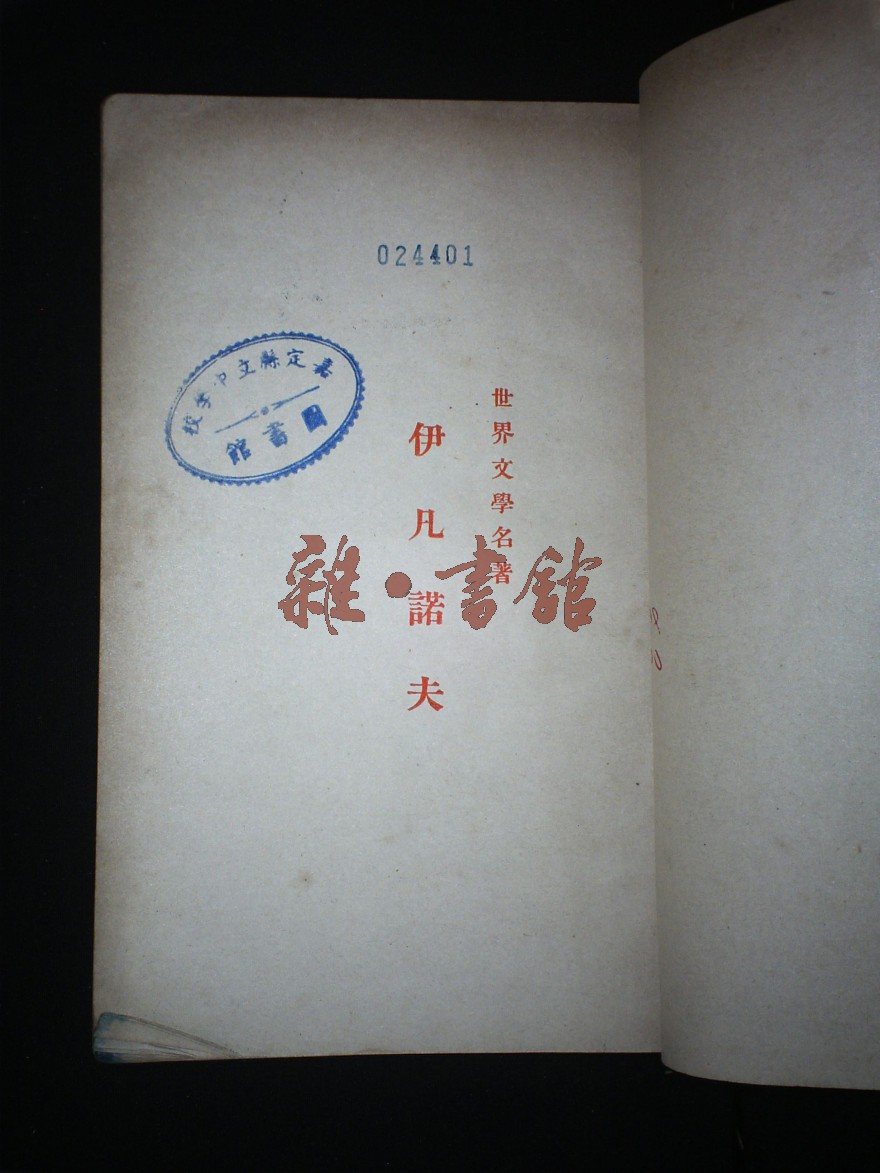 024401
嘉定縣立中學校
圖書館
世界文學名著
伊凡諾夫
雜·書館